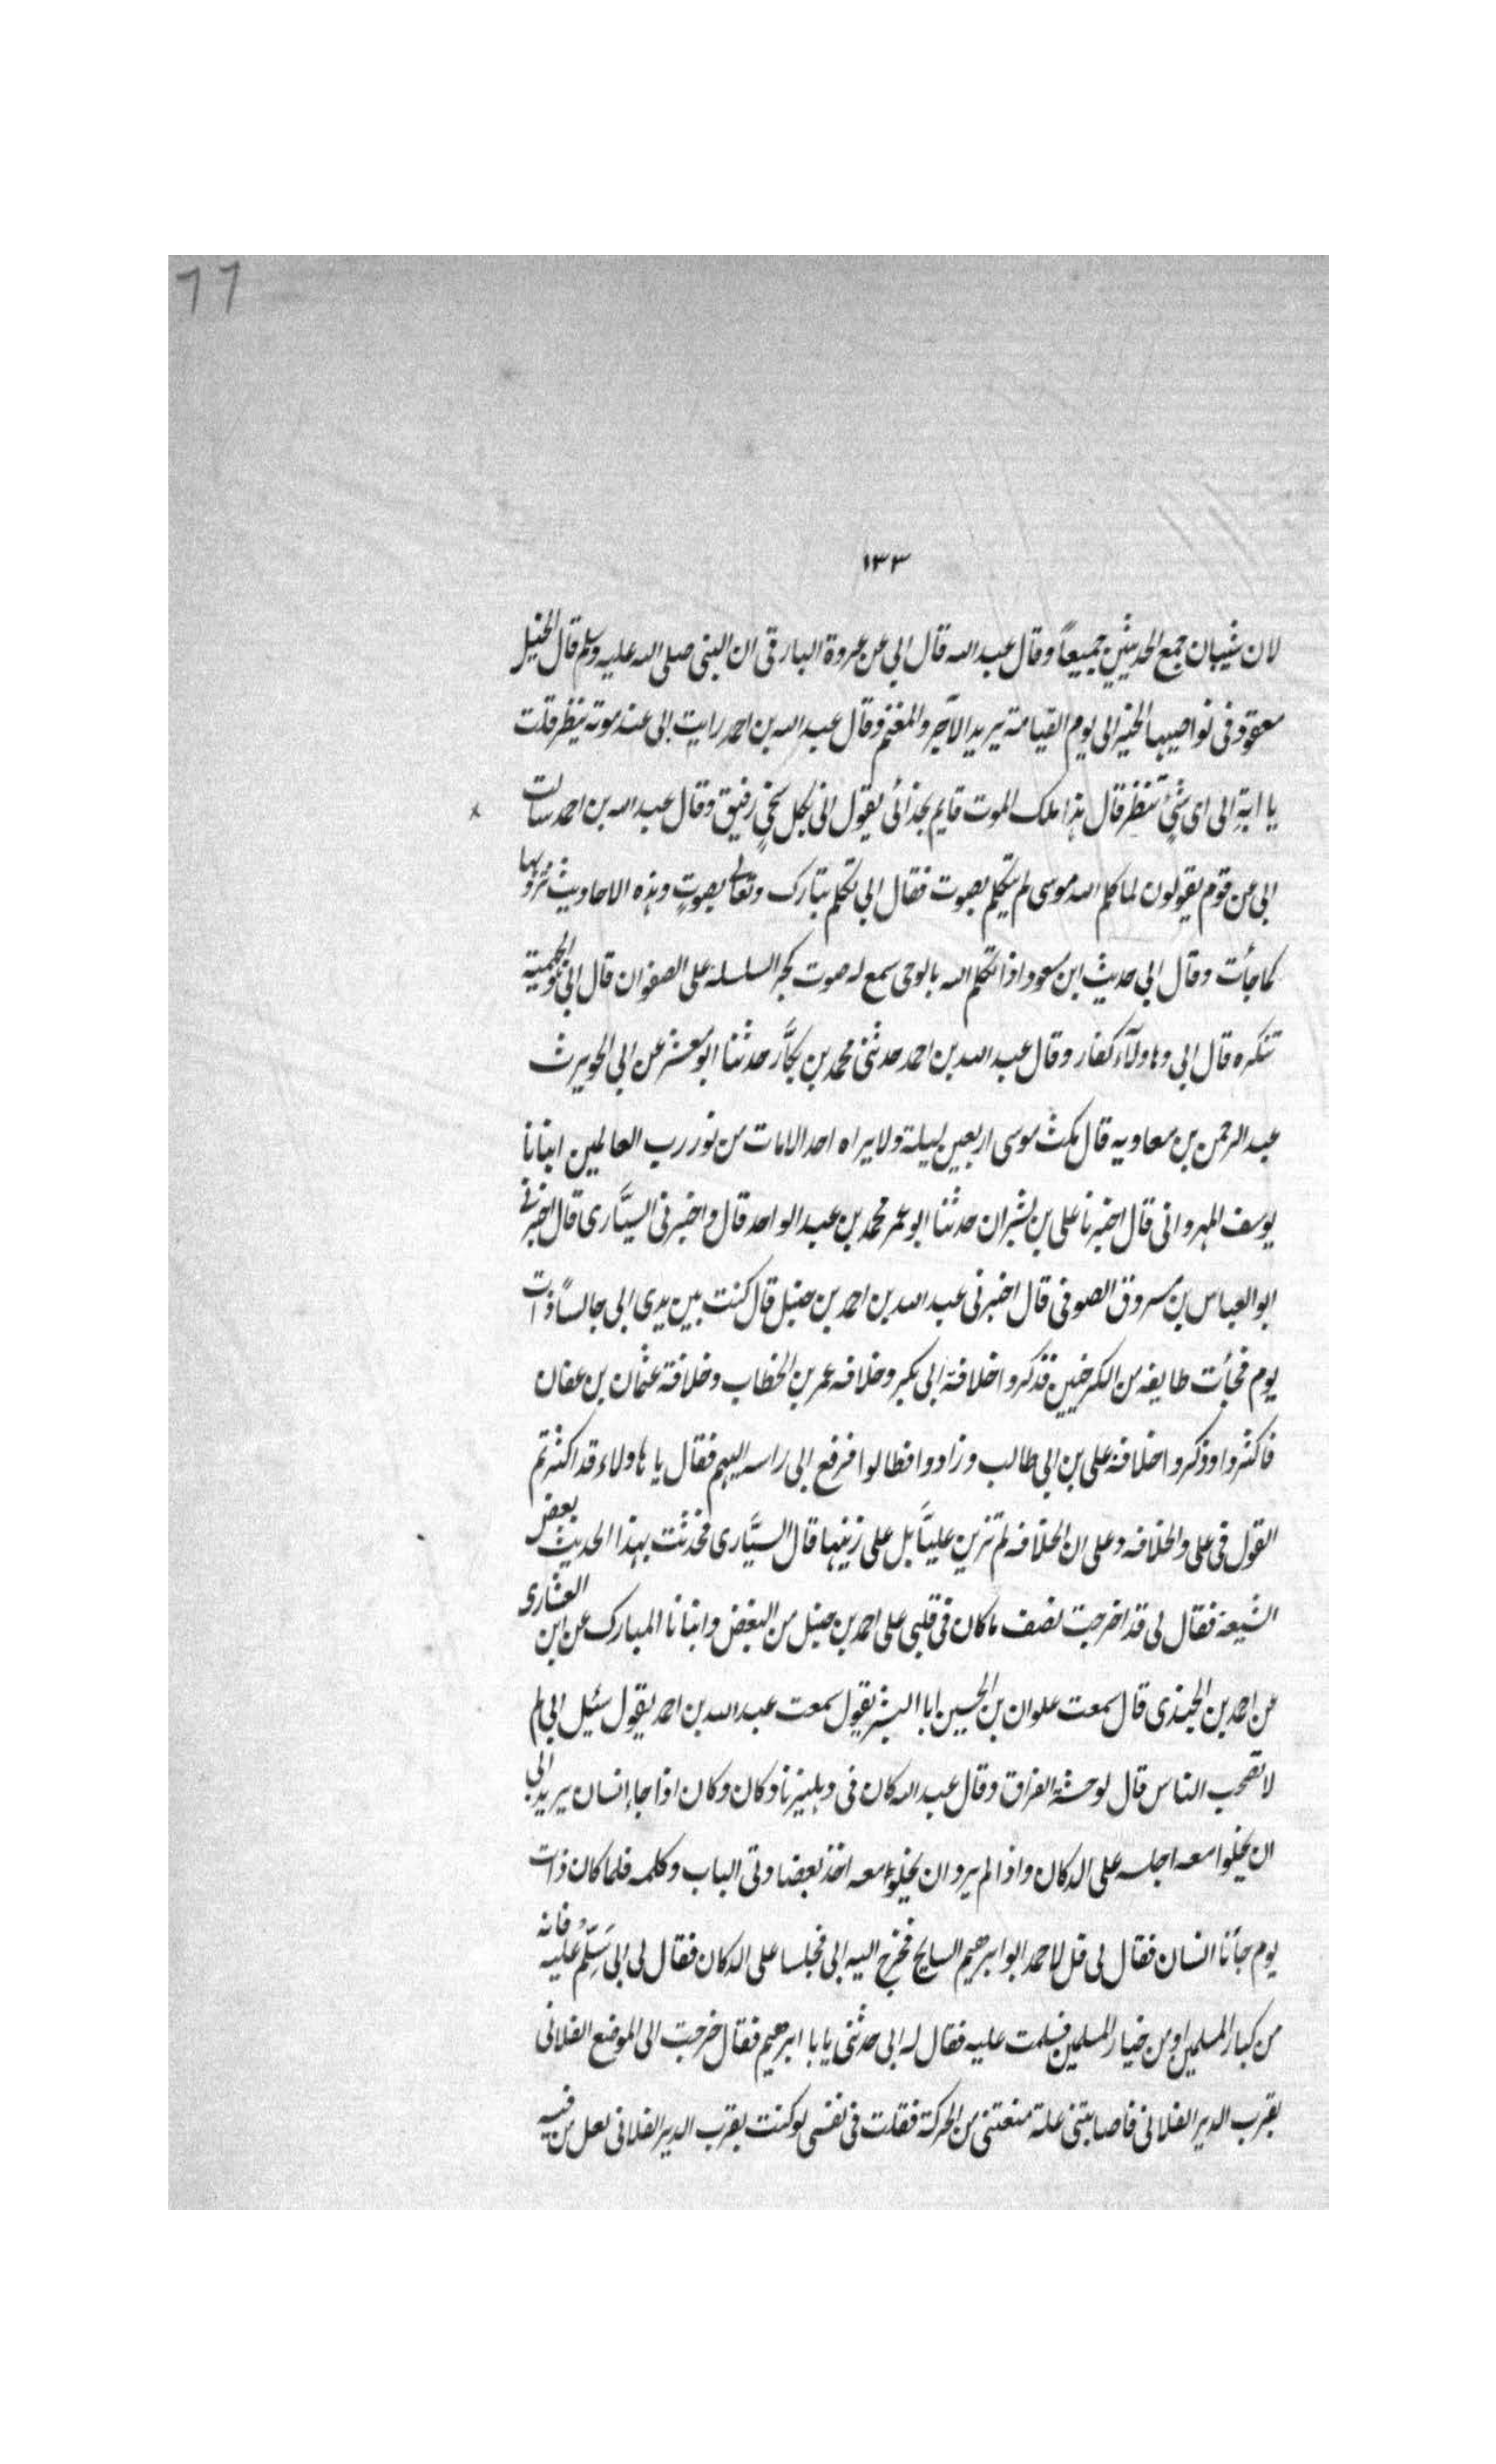 77
١٣٣
لان شيبان جمع الحديثين جميعاً وقال عبد الله قال ابي عن عروة البارقى ان النبى صلى الله عليه وسلم قال الخيل
معقود فى نواصيها الخير الى يوم القيامة يريد الآجر والمغنم وقال عبد الله بن احمد رايت ابى عند موته ينظر قلت
يا ابة الى اى شئ تنظر قال هذا ملك الموت قايم بحذائى يقول انى لكل سخىٍ رفيق وقال عبد الله بن احمد سالت
ابى عن قوم يقولون لما كلم الله موسى لم يتكلم بصوت فقال ابى تكلم تبارك وتعالى بصوتٍ وهذه الاحاديث نرويها
كما جأت وقال ابى حديث ابن مسعود اذا تكلم الله بالوحى سمع له صوت كجر السلسلة على الصفوان قال ابى والجهمية
تنكره قال ابى وهاولآء كفار وقال عبد الله بن احمد حدثنى محمد بن بكَّار حدثنا ابو معشر عن ابى الحويرث
عبد الرحمن بن معاويه قال مكث موسى اربعين ليلة ولا يراه احد الامات من نور رب العالمين انبانا
يوسف المهروانى قال اخبرنا على بن بشران حدثنا ابو عمر محمد بن عبد الواحد قال واخبرنى السيَّارى قال اخبرنى
ابو العباس بن مسروق الصوفى قال اخبرنى عبد الله بن احمد بن حنبل قال كنت بين يدى ابى جالساً ذات
يوم فجأت طايفه من الكرخيين فذكروا خلافة ابى بكر وخلافه عمر بن الخطاب وخلافة عثمان بن عفان
فاكثروا وذكروا خلافة على بن ابى طالب وزادوا فطالوا فرفع ابى راسه اليهم فقال يا هاولاء قد اكثرتم
القول فى على والخلافه وعلى ان الخلافه لم تزين عليَّا بل على زينها قال السيَّارى فحدثت بهذا الحديث بعض
الشيعة فقال لى قد اخرجت نصف ما كان فى قلبى على احمد بن حنبل من البغض وانبانا المبارك عن ابن العشارى
عن احمد بن الجندى قال سمعت علوان بن الحسين ابا البشر يقول سمعت عبد الله بن احمد يقول سئيل ابى لم
لا تصحب الناس قال لوحشة الفراق وقال عبد الله كان فى دهليزنا دكان وكان اذا جاء انسان يريد ابى
ان يخلوا معه اجلسه على الدكان واذا لم يرد ان يخلوا معه اخذ بعضادتى الباب وكلمه فلما كان ذات
يوم جأنا انسان فقال لى قل لاحمد ابو ابرهيم السايح فخرج اليه ابى فجلسا على الدكان فقال لى ابى سَلِّمْ عليه فانه
من كبار المسلمين او من خيار المسلمين فسلمت عليه فقال له ابى حدثنى يا با ابرهيم فقال خرجت الى الموضع الفلانى
بقرب الدير الفلانى فاصابتنى علة منعتنى من الحركة فقلت فى نفسى لو كنت بقرب الدير الفلانى لعل من فيه